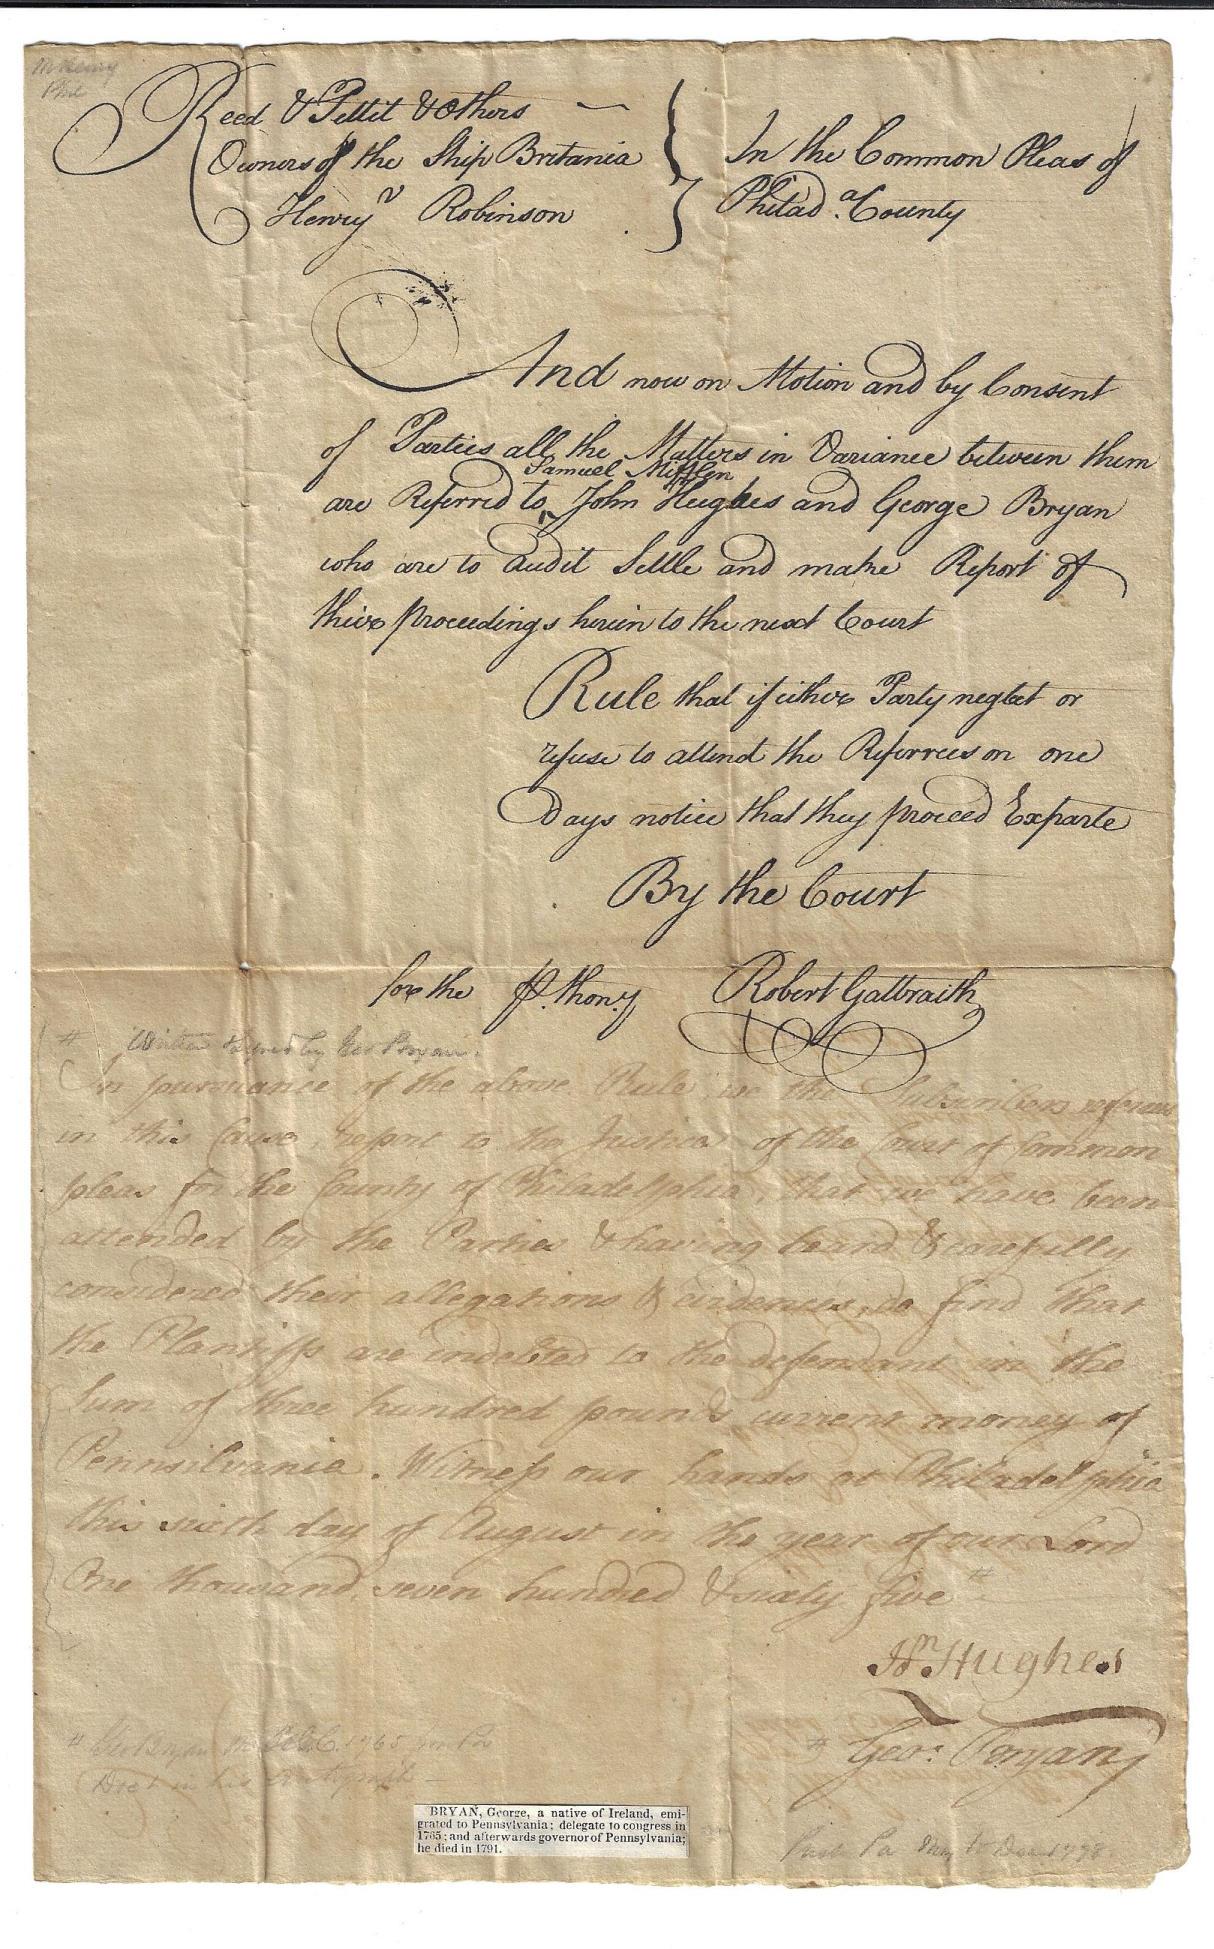 Reed & Pettit & Others
Owners of the Ship Britania
v
Henry Robinson
In the Common Pleas of
Philad.a County
And now on Motion and by Consent
of Parties all the Matters in Variance between them
Samuel Mifflin
are Referred to ^ John Hughes and George Bryan
who are to audit Settle and make Report of
their proceedings herein to the next Court
Rule that if either Party neglect or
refuse to attend the Referrees on one
Days notice that they proceed Exparte
By the Court
for the Pthony Robert Galbraith
# Written & signed by Geo Bryan.
In pursuance of the above Rule, we the Subscribers referees
in this Cause, report to the Justices of the Court of Common
pleas for the County of Philadelphia, that we have been
attended by the Parties & having heard & carefully
considered their allegations & evidences, do find that
the Plantiffs are indebted to the defendant in the
Sum of three hundred pounds current money of
Pennsilvania. Witness our hands at Philadelphia
this sixth day of August in the year of our Lord
One thousand, seven hundred & sixty five #
Jn Hughes
# Geo: Bryan
# Geo Bryan 1765 for Pa
Doc in his autograph
BRYAN, George, a native of Ireland, emi-
grated to Pennsylvania; delegate to congress in
1765; and afterwards governor of Pennsylvania;
he died in 1791.
Pres Pa May to Dec 1778